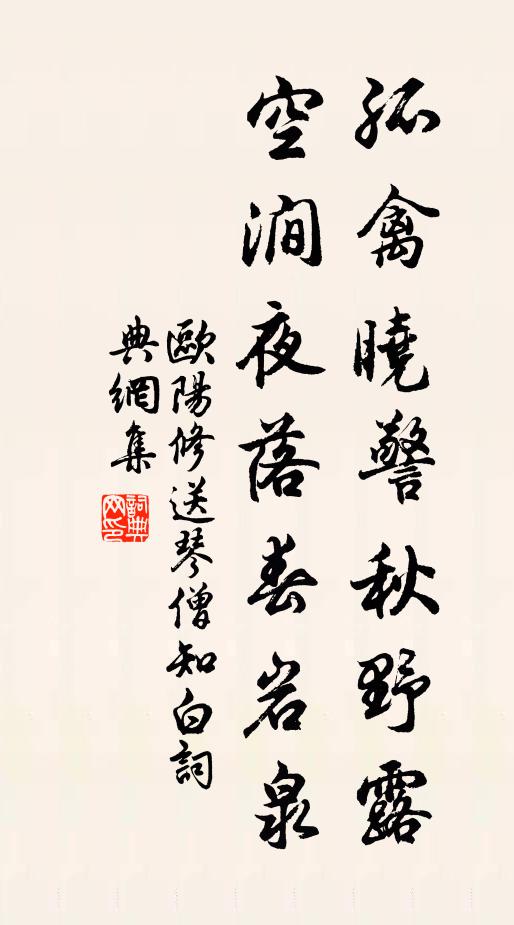 孤禽曉警秋野露
空澗夜落春岩泉
歐陽修送琴僧知白詞
典網集
詞典網印